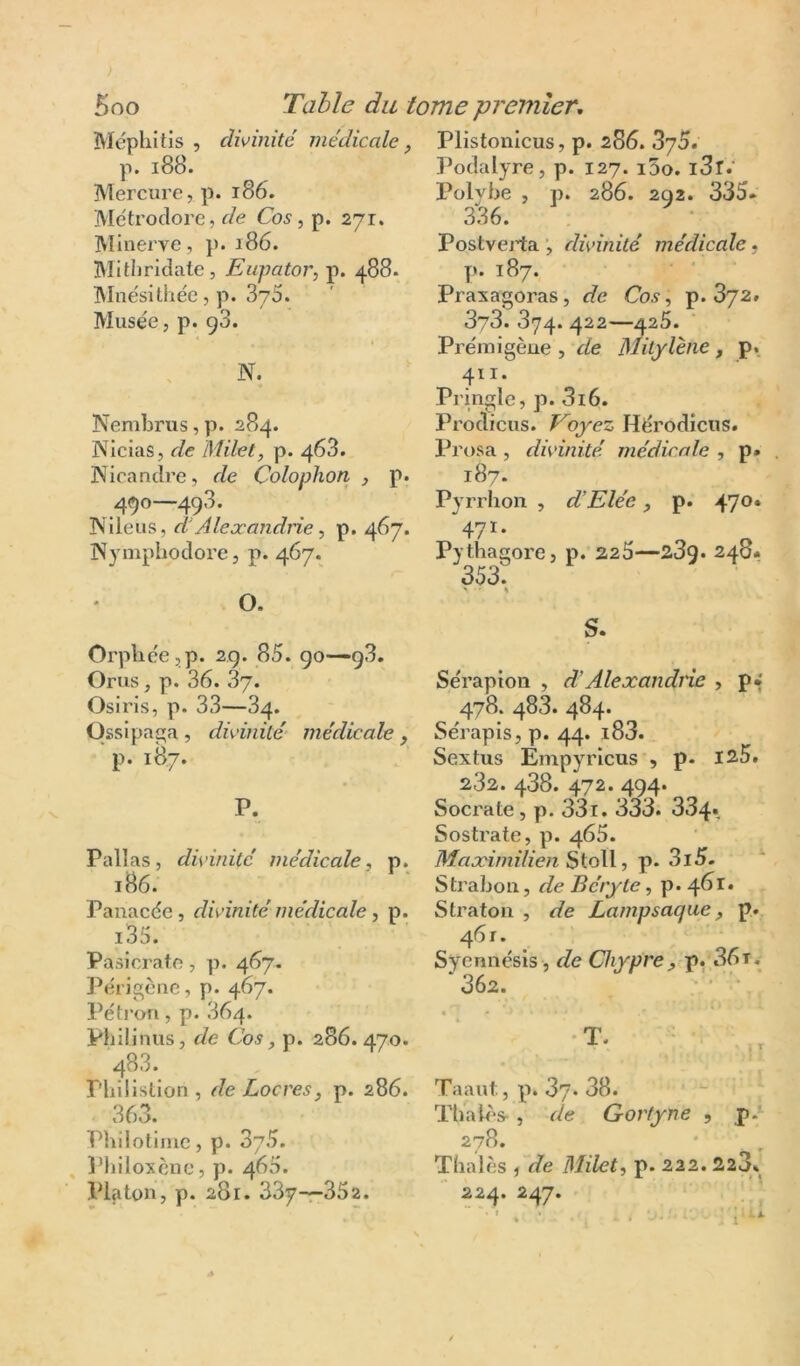 500 Table du tome premier.
Méphitis , divinité médicale,
p. 188.
Mercure, p. 186.
Métrodore, de Cos, p. 271.
Minerve, p. 186.
Mithridate, Eupator, p. 488.
Mnésithée, p. 375.
Musée, p. 93.
N.
Nembrus, p. 284.
Nicias, de Milet, p. 463.
Nicandre, de Colophon , p.
490—493.
Nileus, d'Alexandrie, p. 467.
Nymphodore, p. 467.
O.
Orphée, p. 29. 85. 90—93.
Orus, p. 36. 37.
Osiris, p. 33—34.
Ossipaga, divinité médicale,
p. 187.
P.
Pallas, divinité médicale, p.
186.
Panacée, divinité médicale, p.
135.
Pasicrate, p. 467.
Périgène, p. 467.
Pétron, p. 364.
Philinus, de Cos, p. 286. 470.
483.
Philistion, de Locres, p. 286.
363.
Philotime, p. 375.
Philoxène, p. 465.
Platon, p. 281. 337—352.
Plistonicus, p. 286. 375.
Podalyre, p. 127. 130. 131.
Polybe , p. 286. 292. 335.
336.
Postverta, divinité médicale,
p. 187.
Praxagoras, de Cos, p. 372.
373. 374. 422—425.
Prémigène, de Mitylène, p.
411.
Pringle, p. 316.
Prodicus. Voyez Hérodicus.
Prosa, divinité médicale, p.
187.
Pyrrhon , d'Elée, p. 470.
471.
Pythagore, p. 225—239. 248.
353.
S.
Sérapion , d'Alexandrie , p.
478. 483. 484.
Sérapis, p. 44. 183.
Sextus Empyricus , p. 125.
232. 438. 472. 494.
Socrate, p. 331. 333. 334.
Sostrate, p. 465.
Maximilien Stoll, p. 315.
Strabon, de Béryte, p. 461.
Straton , de Lampsaque, p.
461.
Syennésis, de Chypre, p. 361.
362.
T.
Taaut, p. 37. 38.
Thalès , de Gortyne , p.
278.
Thalès , de Milet, p. 222. 223.
224. 247.